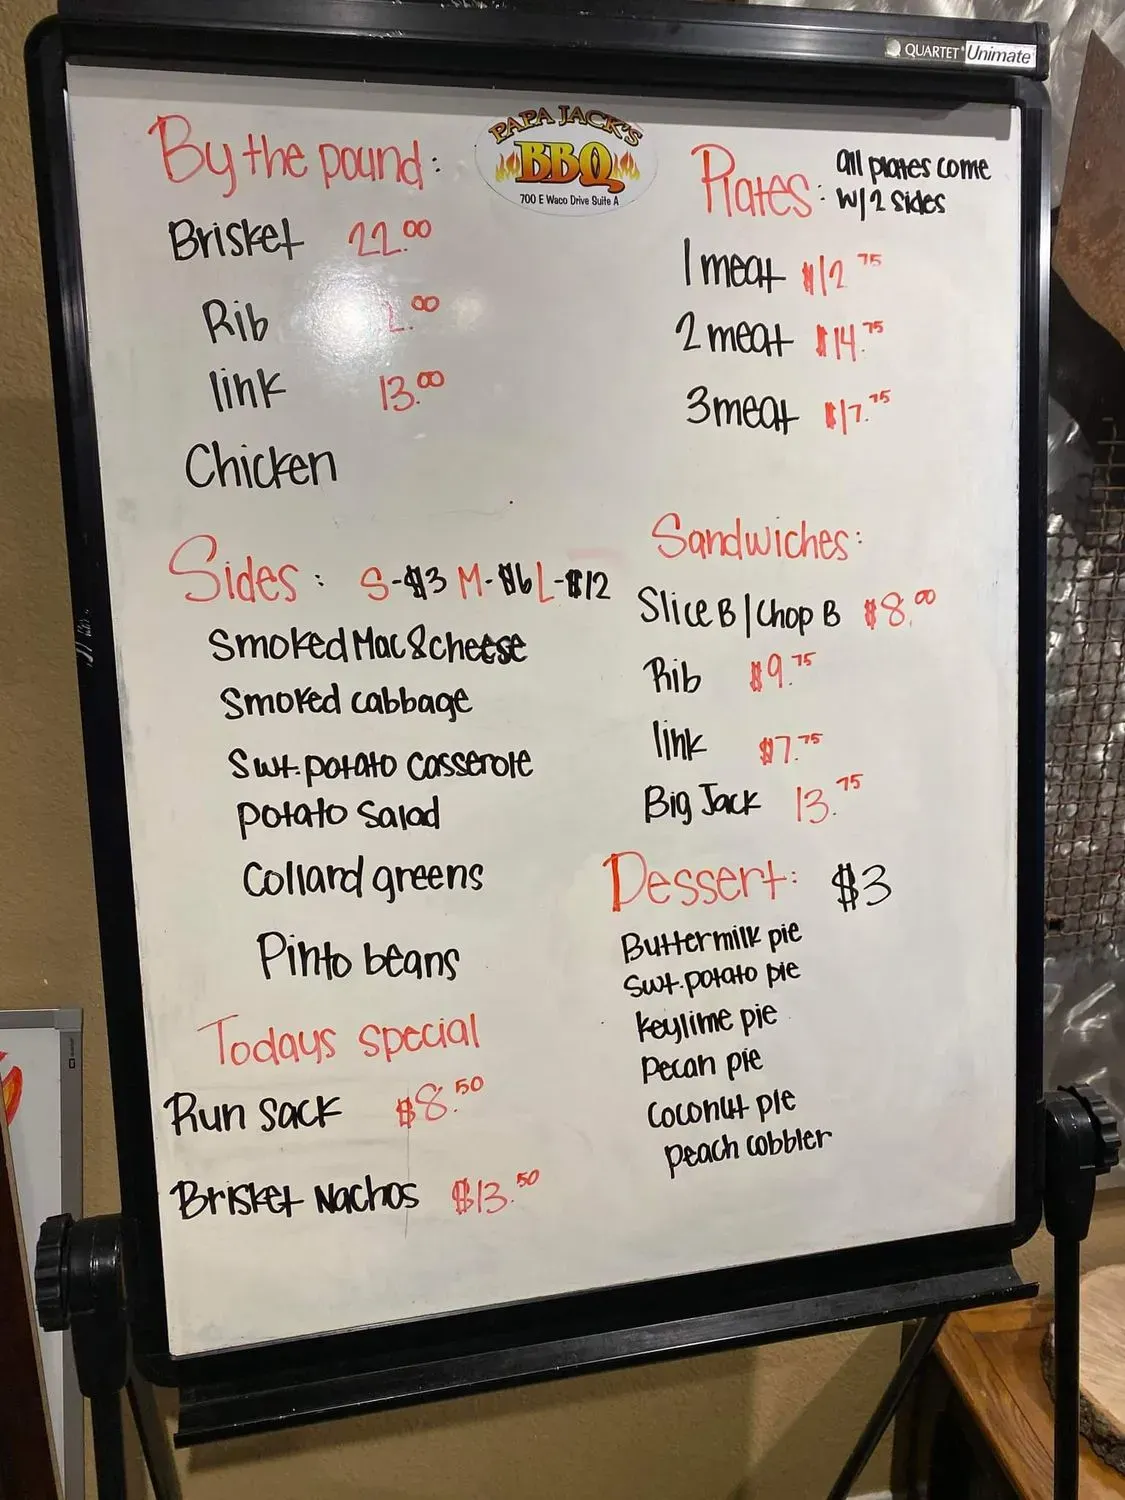 QUARTET Unimate
PAPA JACK'S
BBQ
700 E Waco Drive Suite A
By the pound:
Brisket 22.00
Rib
link 13.00
Chicken
Sides: S-$3 M-$6 L-$12
Smoked Mac & cheese
Smoked cabbage
Swt. potato casserole
potato salad
Collard greens
Pinto beans
Todays special
Run Sack $8.50
Brisket Nachos $13.50
Plates: all plates come
w/2 sides
1 meat $12.75
2 meat $14.75
3 meat $17.75
Sandwiches:
Slice B/Chop B $8.00
Rib $9.75
link $7.75
Big Jack 13.75
Dessert: $3
Buttermilk pie
Swt. potato pie
keylime pie
Pecan pie
Coconut pie
peach cobbler